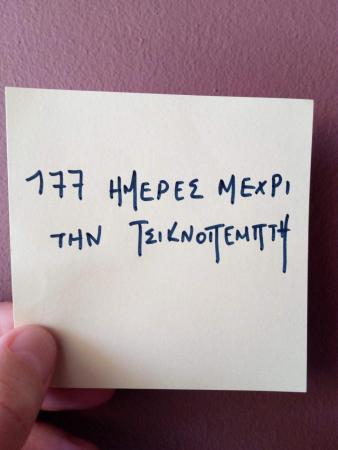 177 ΗΜΕΡΕΣ ΜΕΧΡΙ
ΤΗΝ ΤΣΙΚΝΟΠΕΜΠΤΗ